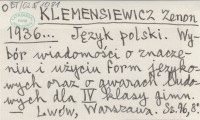 KLEMENSIEWICZ Zenon
1936... Język polski. Wy-
bór wiadomości o znacze-
niu i użyciu form języko-
wych oraz o gwarach ludo-
wych dla IV klasy gimn.
— Lwów, Warszawa. Ss. 96, 8°